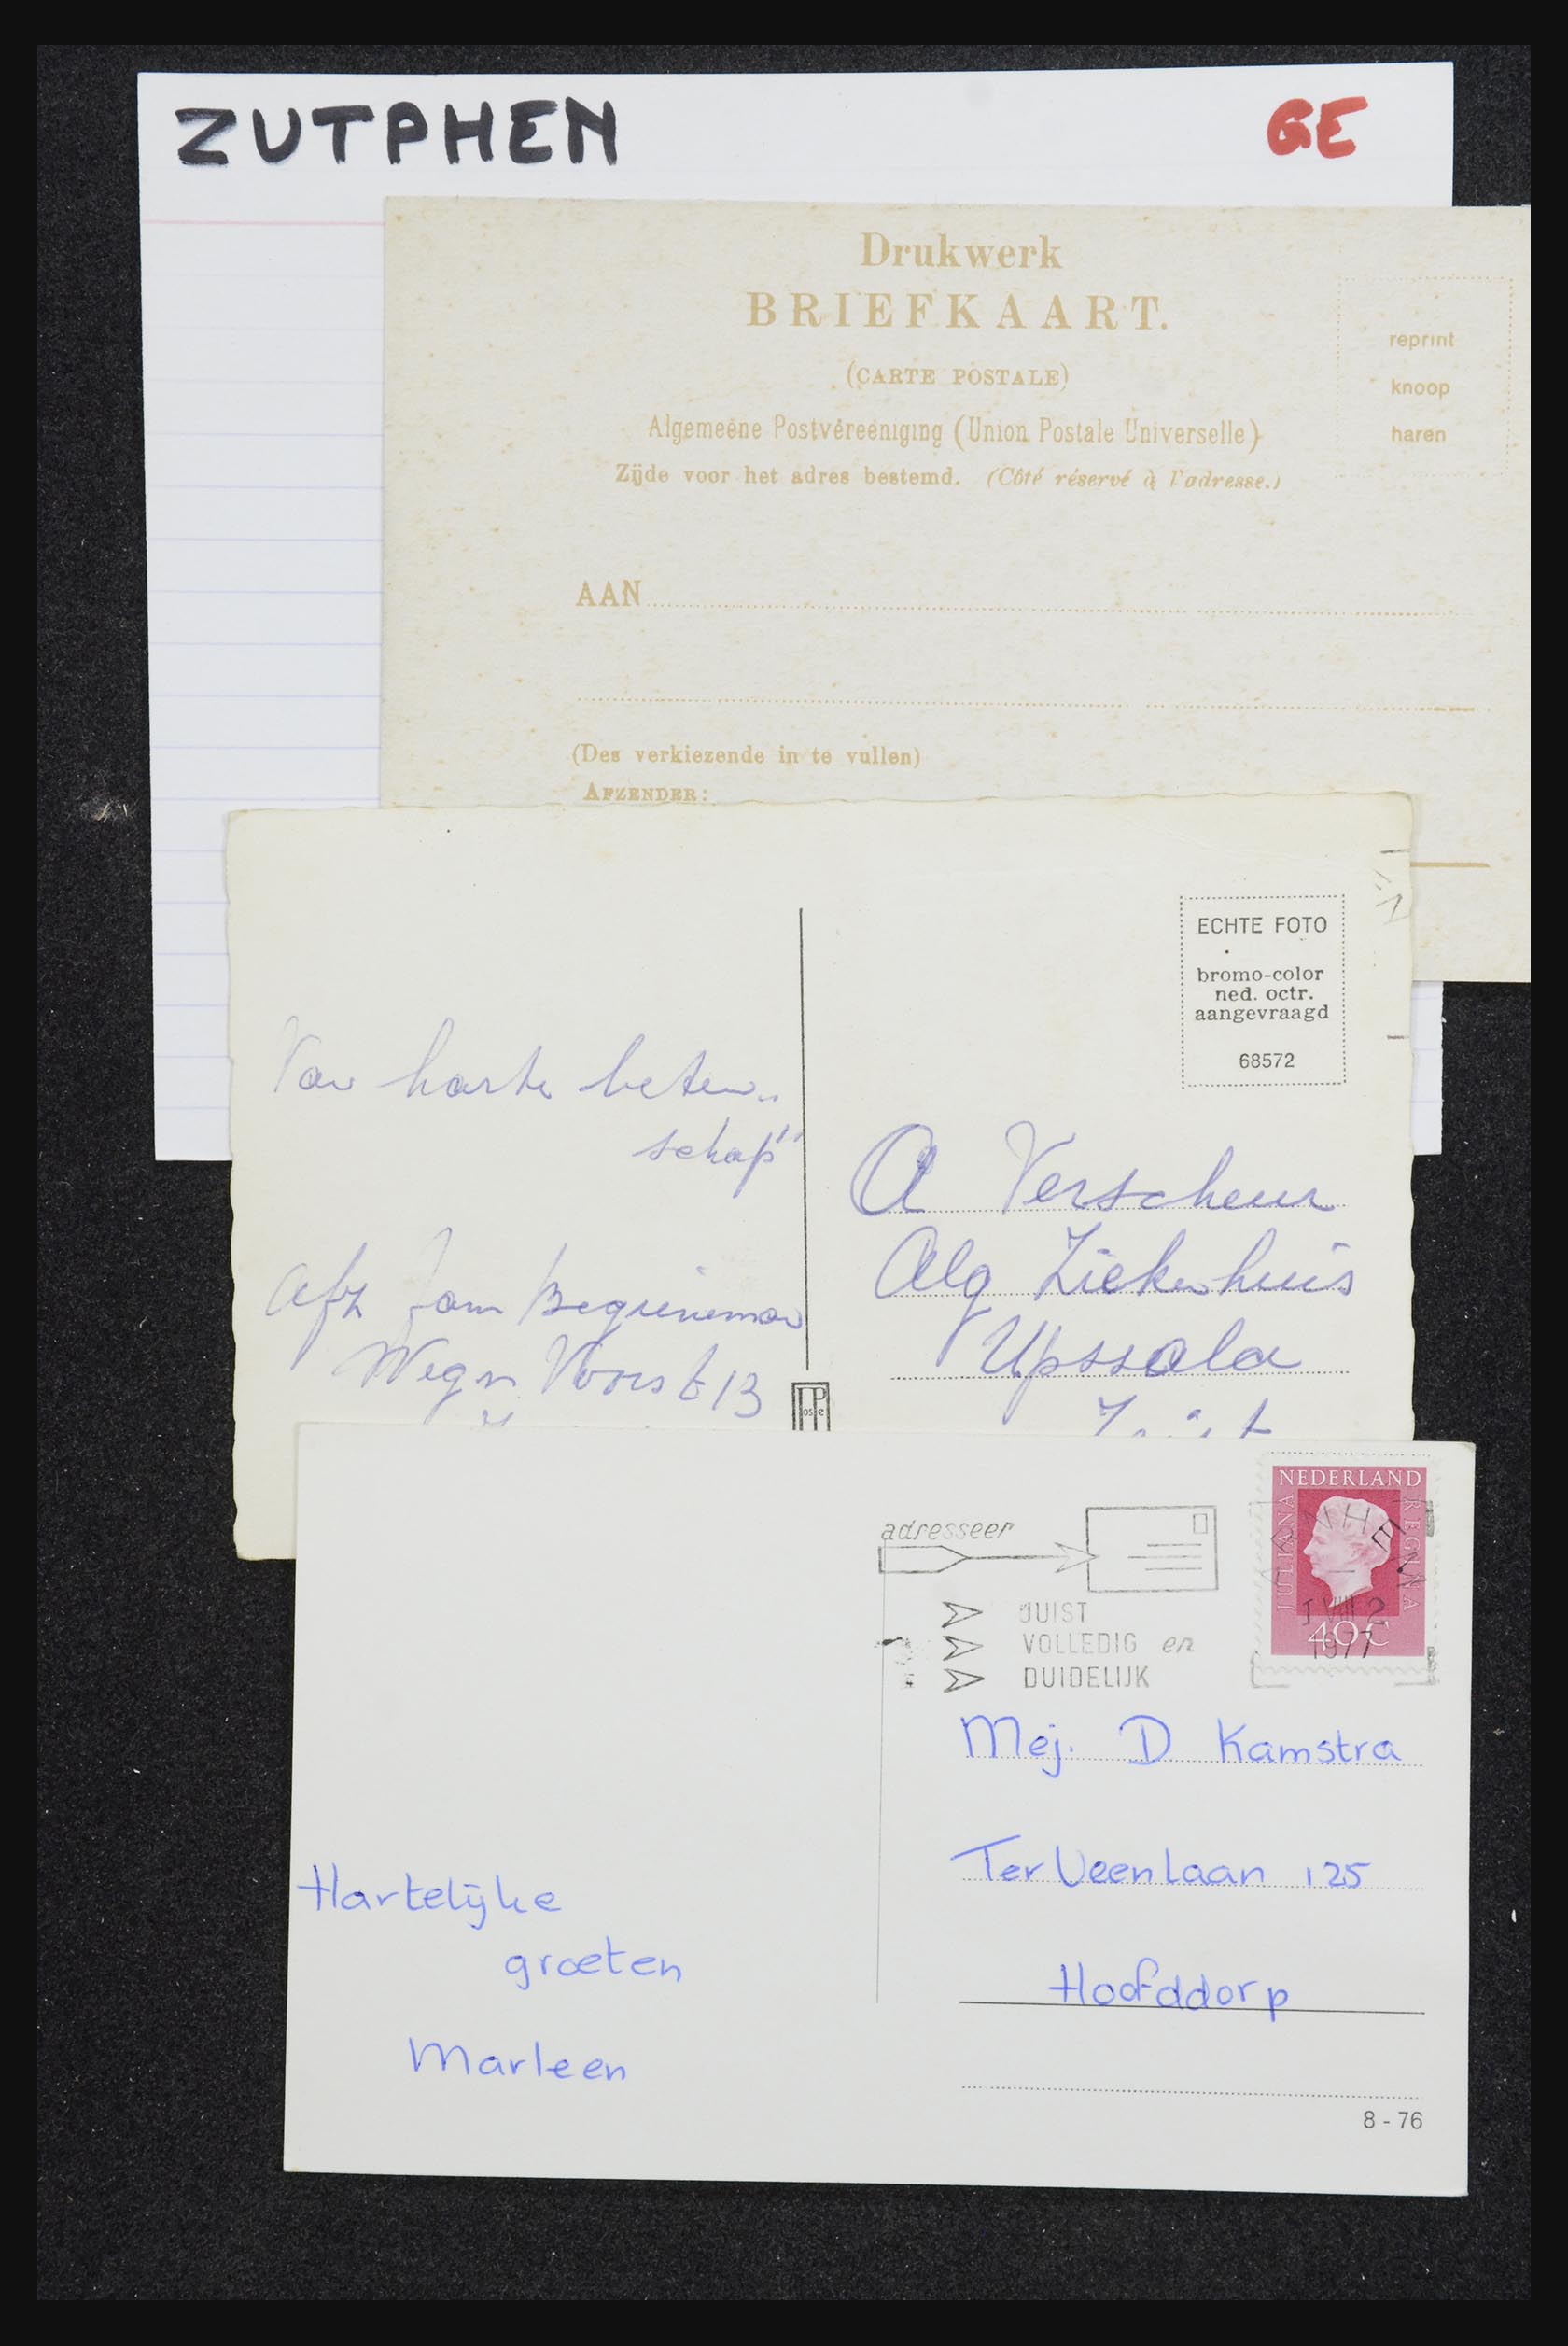 ZUTPHEN GE
Drukwerk
BRIEFKAART.
(CARTE POSTALE)
Algemeene Postvereeniging (Union Postale Universelle)
Zijde voor het adres bestemd. (Côté réservé à l'adresse.)
reprint
knoop
haren
AAN
(Des verkiezende in te vullen)
AFZENDER:
ECHTE FOTO
bromo-color
ned. octr.
aangevraagd
68572
Van harte beten..
schap"
Afz fam
Weg n Voorst 13
A Verscheur
Alg Ziekenhuis
Upssala
adresseer
JUIST
VOLLEDIG en
DUIDELIJK
NEDERLAND
JULIANA REGINA
40c
ARNHEM
1977
Mej. D Kamstra
Ter Veenlaan 125
Hoofddorp
Hartelijke
groeten
Marleen
8-76